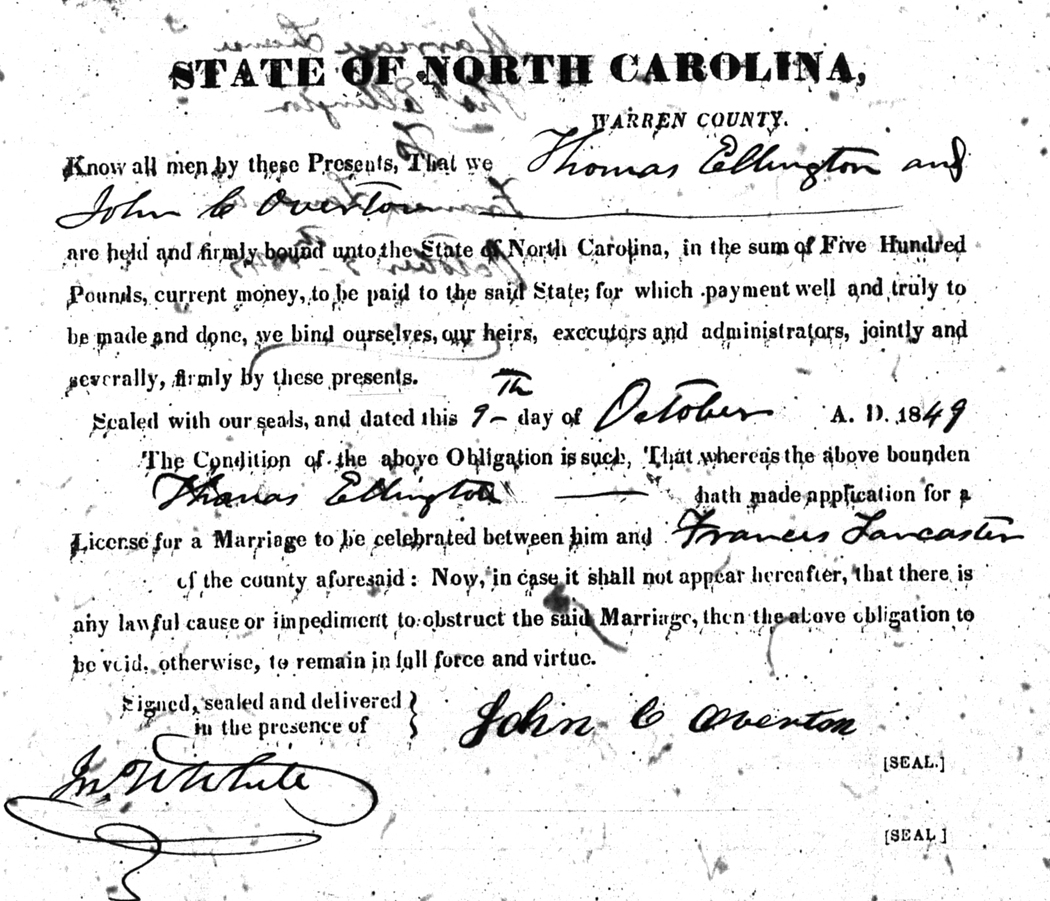 STATE OF NORTH CAROLINA,
WARREN COUNTY.
Know all men by these Presents, That we Thomas Ellington and
John C Overton
are held and firmly bound unto the State of North Carolina, in the sum of Five Hundred
Pounds, current money, to be paid to the said State; for which payment well and truly to
be made and done, we bind ourselves, our heirs, executors and administrators, jointly and
severally, firmly by these presents.
Sealed with our seals, and dated this 9th day of October A. D. 1849
The Condition of the above Obligation is such, That whereas the above bounden
Thomas Ellington hath made application for a
License for a Marriage to be celebrated between him and Frances Lancaster
of the county aforesaid: Now, in case it shall not appear hereafter, that there is
any lawful cause or impediment to obstruct the said Marriage, then the above obligation to
be void. otherwise, to remain in full force and virtue.
Signed, sealed and delivered
in the presence of
John C Overton
[SEAL.]
Jn. W White
[SEAL]